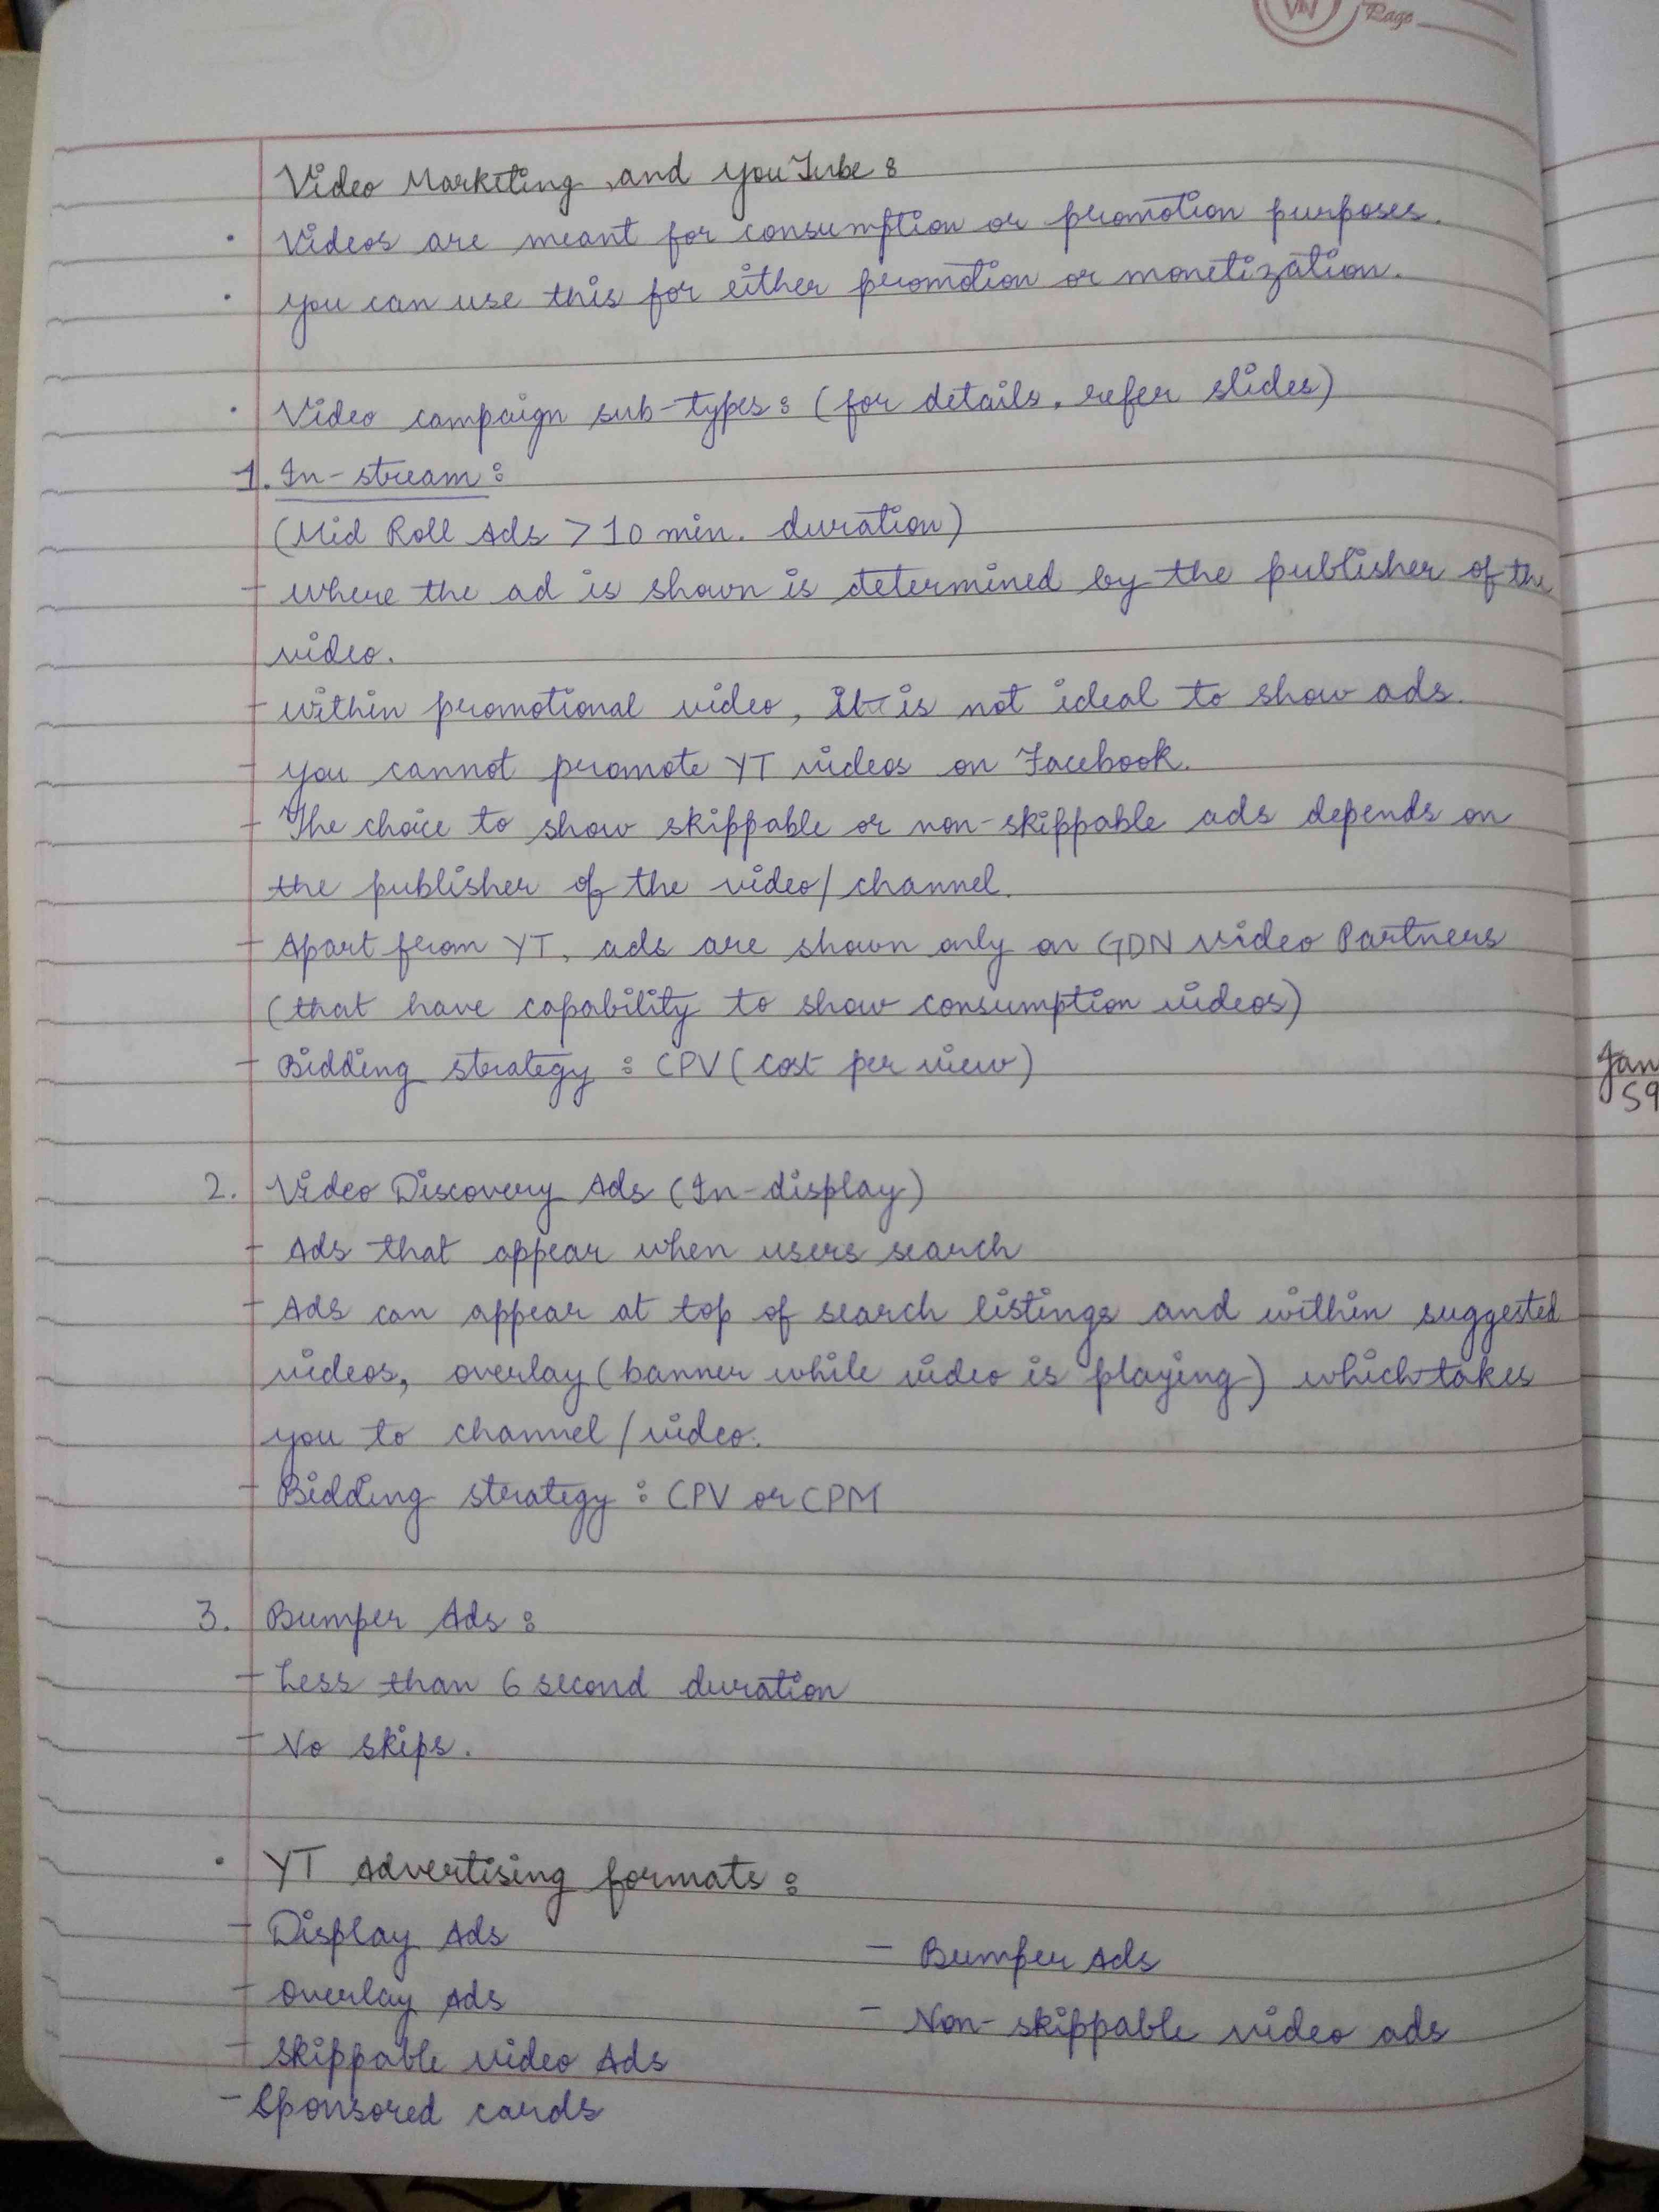 Page
Video Marketing and YouTube :
• Videos are meant for consumption or promotion purposes.
• you can use this for either promotion or monetization.
• Video campaign sub-types : (for details, refer slides)
1. In-stream :
(Mid Roll Ads > 10 min. duration)
- where the ad is shown is determined by the publisher of the
video.
- within promotional video, it is not ideal to show ads.
- you cannot promote YT videos on Facebook.
- The choice to show skippable or non-skippable ads depends on
the publisher of the video/channel.
- Apart from YT, ads are shown only on GDN video Partners
(that have capability to show consumption videos)
- Bidding strategy : CPV (cost per view)
2. Video Discovery Ads (In-display)
- Ads that appear when users search
- Ads can appear at top of search listings and within suggested
videos, overlay (banner while video is playing) which takes
you to channel/video.
- Bidding strategy : CPV or CPM
3. Bumper Ads :
- Less than 6 second duration
- No skips.
• YT Advertising formats :
- Display Ads
- Bumper Ads
- Overlay Ads
- Non-skippable video ads
- Skippable video Ads
- Sponsored cards